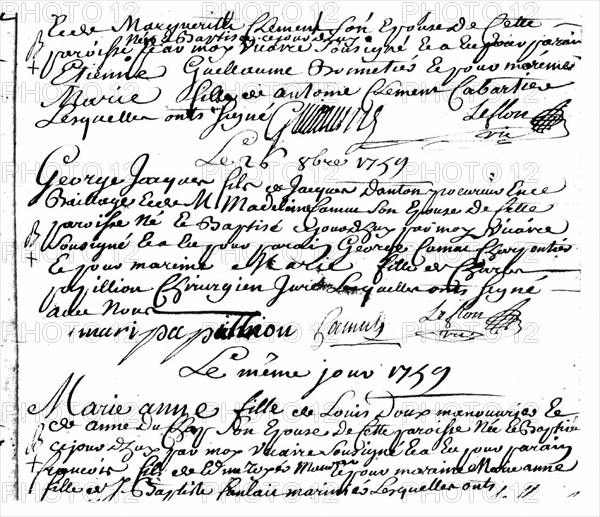 et de Margueritte Clement son Epouse de Cette
paroisse Né et Baptisé cejourd'huy par moy Vicaire soussigné et a eu pour parain
Etienne Guillaume et pour mareine
Marie fille de antoine Clement Cabartier
Lesquelles onts signé
Leflon
vic
Le 26 8bre 1759
George Jacques fils de Jacques Danton procureur Ence
Bailliage et de M Madeleine Camus son Epouse de Cette
paroisse Né et Baptisé cejourd'huy par moy Vicaire
soussigné et a eu pour parain George Camus Charpentier
et pour mareine Marie fille de Charles
papillion Chirurgien Juré Lesquelles onts signé
avec Nous
mari papillion Camus Leflon
vic
Le même jour 1759
Marie anne fille de Louis Doux manouvrier et
de anne du son Epouse de Cette paroisse Née et Baptisée
cejourd'huy par moy Vicaire soussigné et a eu pour parain
francois fils de Edme et pour mareine Marie anne
fille de J. Baptiste Lesquelles onts